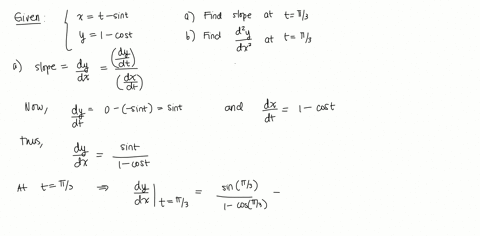 Given: { x = t - sint
y = 1 - cost
a) Find slope at t = π/3
b) Find d²y/dx² at t = π/3
a) slope = dy/dx = (dy/dt)/(dx/dt)
Now, dy/dt = 0 - (-sint) = sint and dx/dt = 1 - cost
thus, dy/dx = sint/(1 - cost)
At t = π/3 ⇒ dy/dx | t = π/3 = sin(π/3)/(1 - cos(π/3)) -